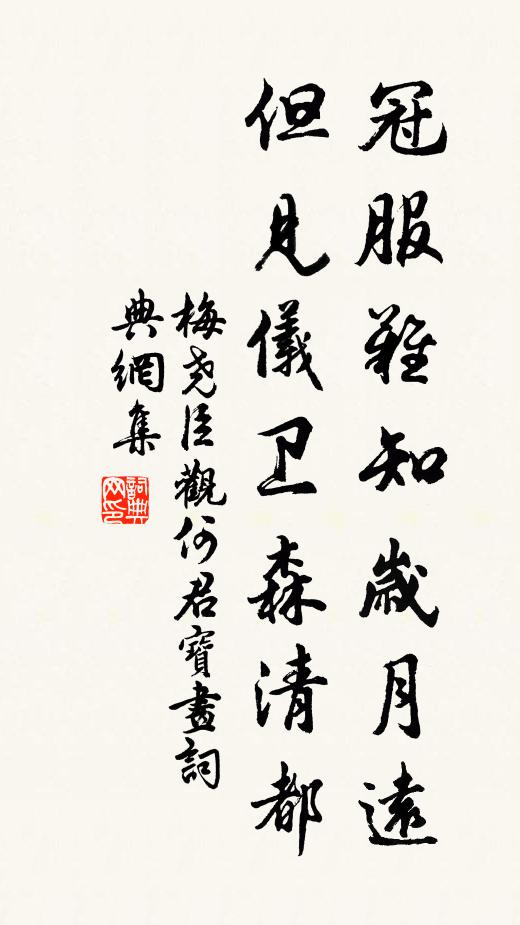 冠服難知歲月遠
但見儀卫森清都
梅尧臣觀何君寶畫詞
典網集
詞典
网印